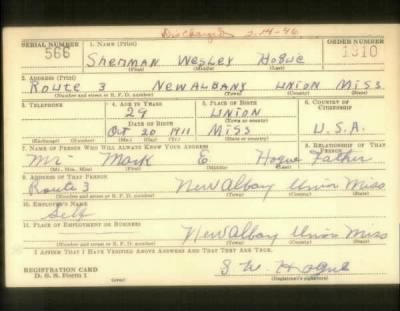 Discharged 2-14-46
SERIAL NUMBER 1. NAME (Print) ORDER NUMBER
566 Sherman Wesley Hogue 1910
(First) (Middle) (Last)
2. ADDRESS (Print)
Route 3 New Albany Union Miss
(Number and street or R. F. D. number) (Town) (County) (State)
3. TELEPHONE 4. AGE IN YEARS 5. PLACE OF BIRTH 6. COUNTRY OF
29 Union CITIZENSHIP
DATE OF BIRTH (Town or county)
Oct 20 1911 Miss U.S.A.
(Exchange) (Number) (Mo.) (Day) (Yr.) (State or country)
7. NAME OF PERSON WHO WILL ALWAYS KNOW YOUR ADDRESS 8. RELATIONSHIP OF THAT PERSON
Mr Mark E Hogue Father
(Mr., Mrs., Miss) (First) (Middle) (Last)
9. ADDRESS OF THAT PERSON
Route 3 New Albay Union Miss
(Number and street or R. F. D. number) (Town) (County) (State)
10. EMPLOYER'S NAME
Self
11. PLACE OF EMPLOYMENT OR BUSINESS
New Albay Union Miss
(Number and street or R. F. D. number) (Town) (County) (State)
I AFFIRM THAT I HAVE VERIFIED ABOVE ANSWERS AND THAT THEY ARE TRUE.
REGISTRATION CARD S. W. Hogue
D. S. S. Form 1 (over) (Registrant's signature)